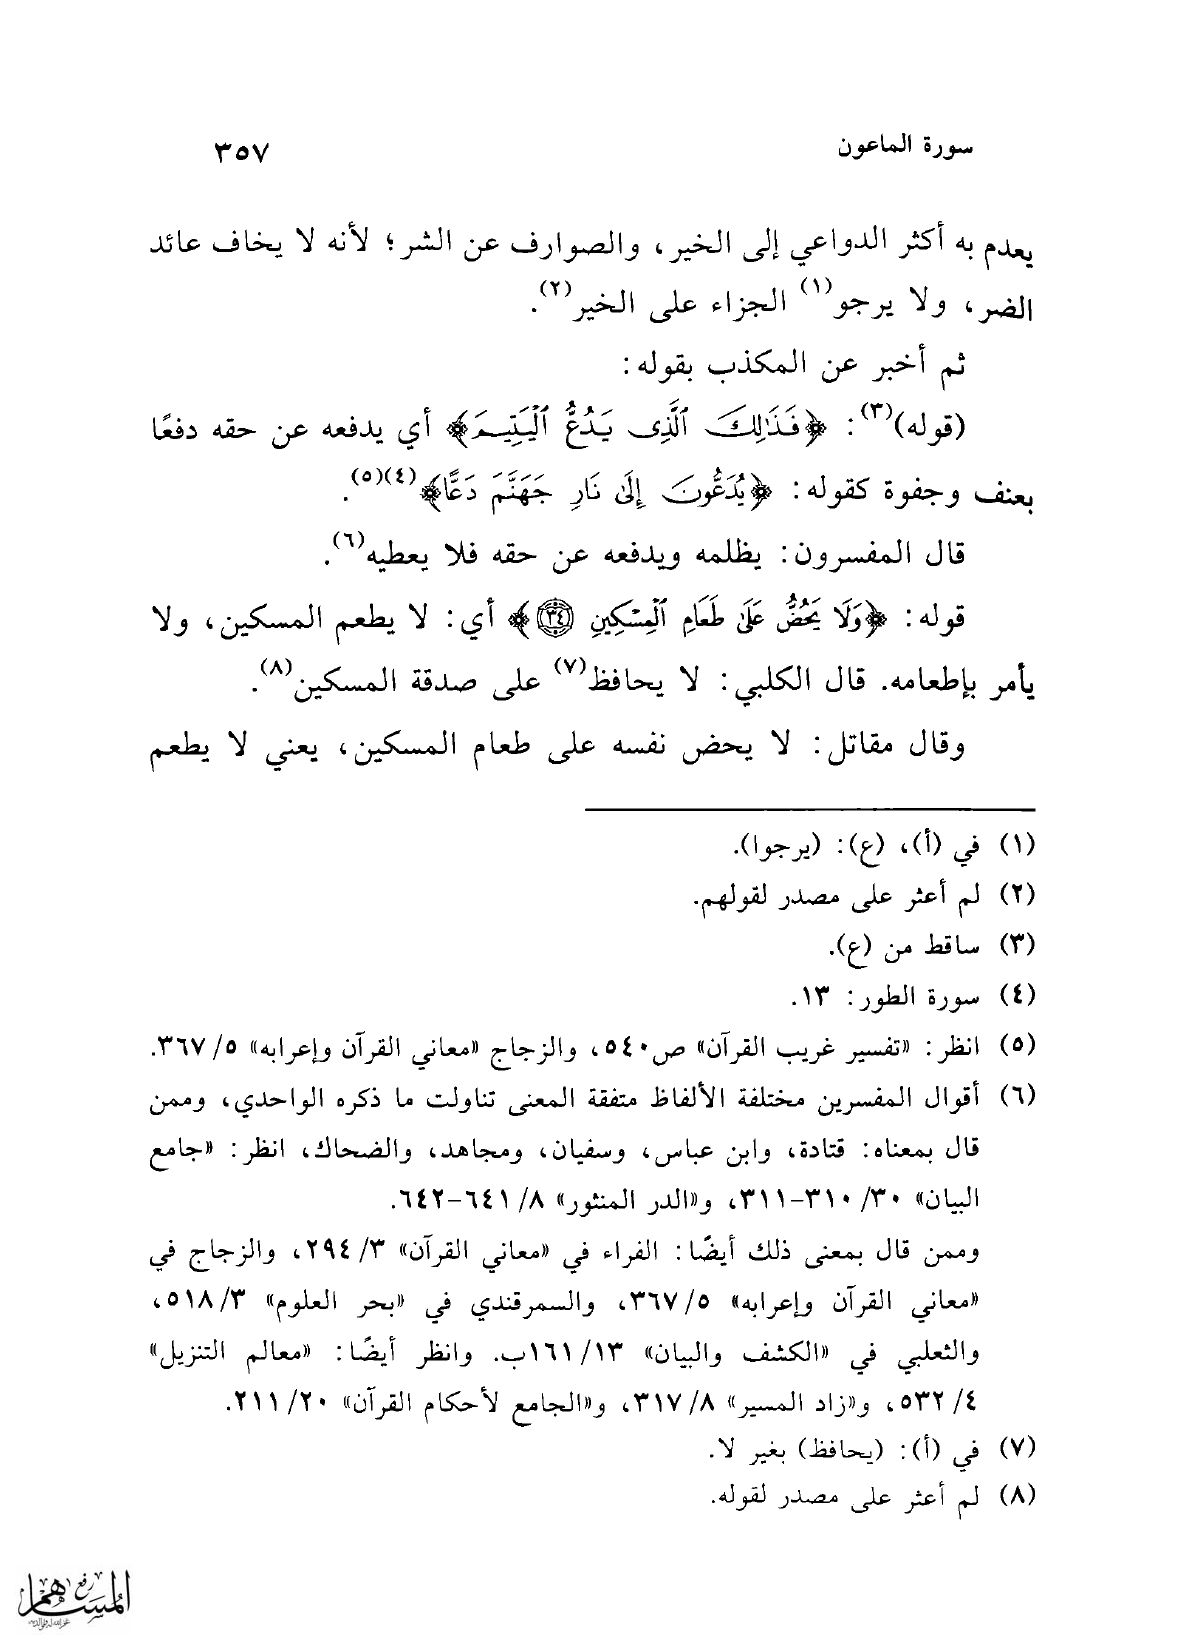 سورة الماعون ٣٥٧
يعدم به أكثر الدواعي إلى الخير، والصوارف عن الشر؛ لأنه لا يخاف عائد
الضر، ولا يرجو(١) الجزاء على الخير(٢).
ثم أخبر عن المكذب بقوله:
(قوله)(٣): ﴿فَذَٰلِكَ ٱلَّذِى يَدُعُّ ٱلْيَتِيمَ﴾ أي يدفعه عن حقه دفعًا
بعنف وجفوة كقوله: ﴿يُدَعُّونَ إِلَىٰ نَارِ جَهَنَّمَ دَعًّا﴾(٤)(٥).
قال المفسرون: يظلمه ويدفعه عن حقه فلا يعطيه(٦).
قوله: ﴿وَلَا يَحُضُّ عَلَىٰ طَعَامِ ٱلْمِسْكِينِ ٣٤﴾ أي: لا يطعم المسكين، ولا
يأمر بإطعامه. قال الكلبي: لا يحافظ(٧) على صدقة المسكين(٨).
وقال مقاتل: لا يحض نفسه على طعام المسكين، يعني لا يطعم
(١) في (أ)، (ع): (يرجوا).
(٢) لم أعثر على مصدر لقولهم.
(٣) ساقط من (ع).
(٤) سورة الطور: ١٣.
(٥) انظر: «تفسير غريب القرآن» ص٥٤٠، والزجاج «معاني القرآن وإعرابه» ٥/ ٣٦٧.
(٦) أقوال المفسرين مختلفة الألفاظ متفقة المعنى تناولت ما ذكره الواحدي، وممن
قال بمعناه: قتادة، وابن عباس، وسفيان، ومجاهد، والضحاك، انظر: «جامع
البيان» ٣٠/ ٣١٠-٣١١، و«الدر المنثور» ٨/ ٦٤١-٦٤٢.
وممن قال بمعنى ذلك أيضًا: الفراء في «معاني القرآن» ٣/ ٢٩٤، والزجاج في
«معاني القرآن وإعرابه» ٥/ ٣٦٧، والسمرقندي في «بحر العلوم» ٣/ ٥١٨،
والثعلبي في «الكشف والبيان» ١٣/ ١٦١ب. وانظر أيضًا: «معالم التنزيل»
٤/ ٥٣٢، و«زاد المسير» ٨/ ٣١٧، و«الجامع لأحكام القرآن» ٢٠/ ٢١١.
(٧) في (أ): (يحافظ) بغير لا.
(٨) لم أعثر على مصدر لقوله.
رفع
المساهم